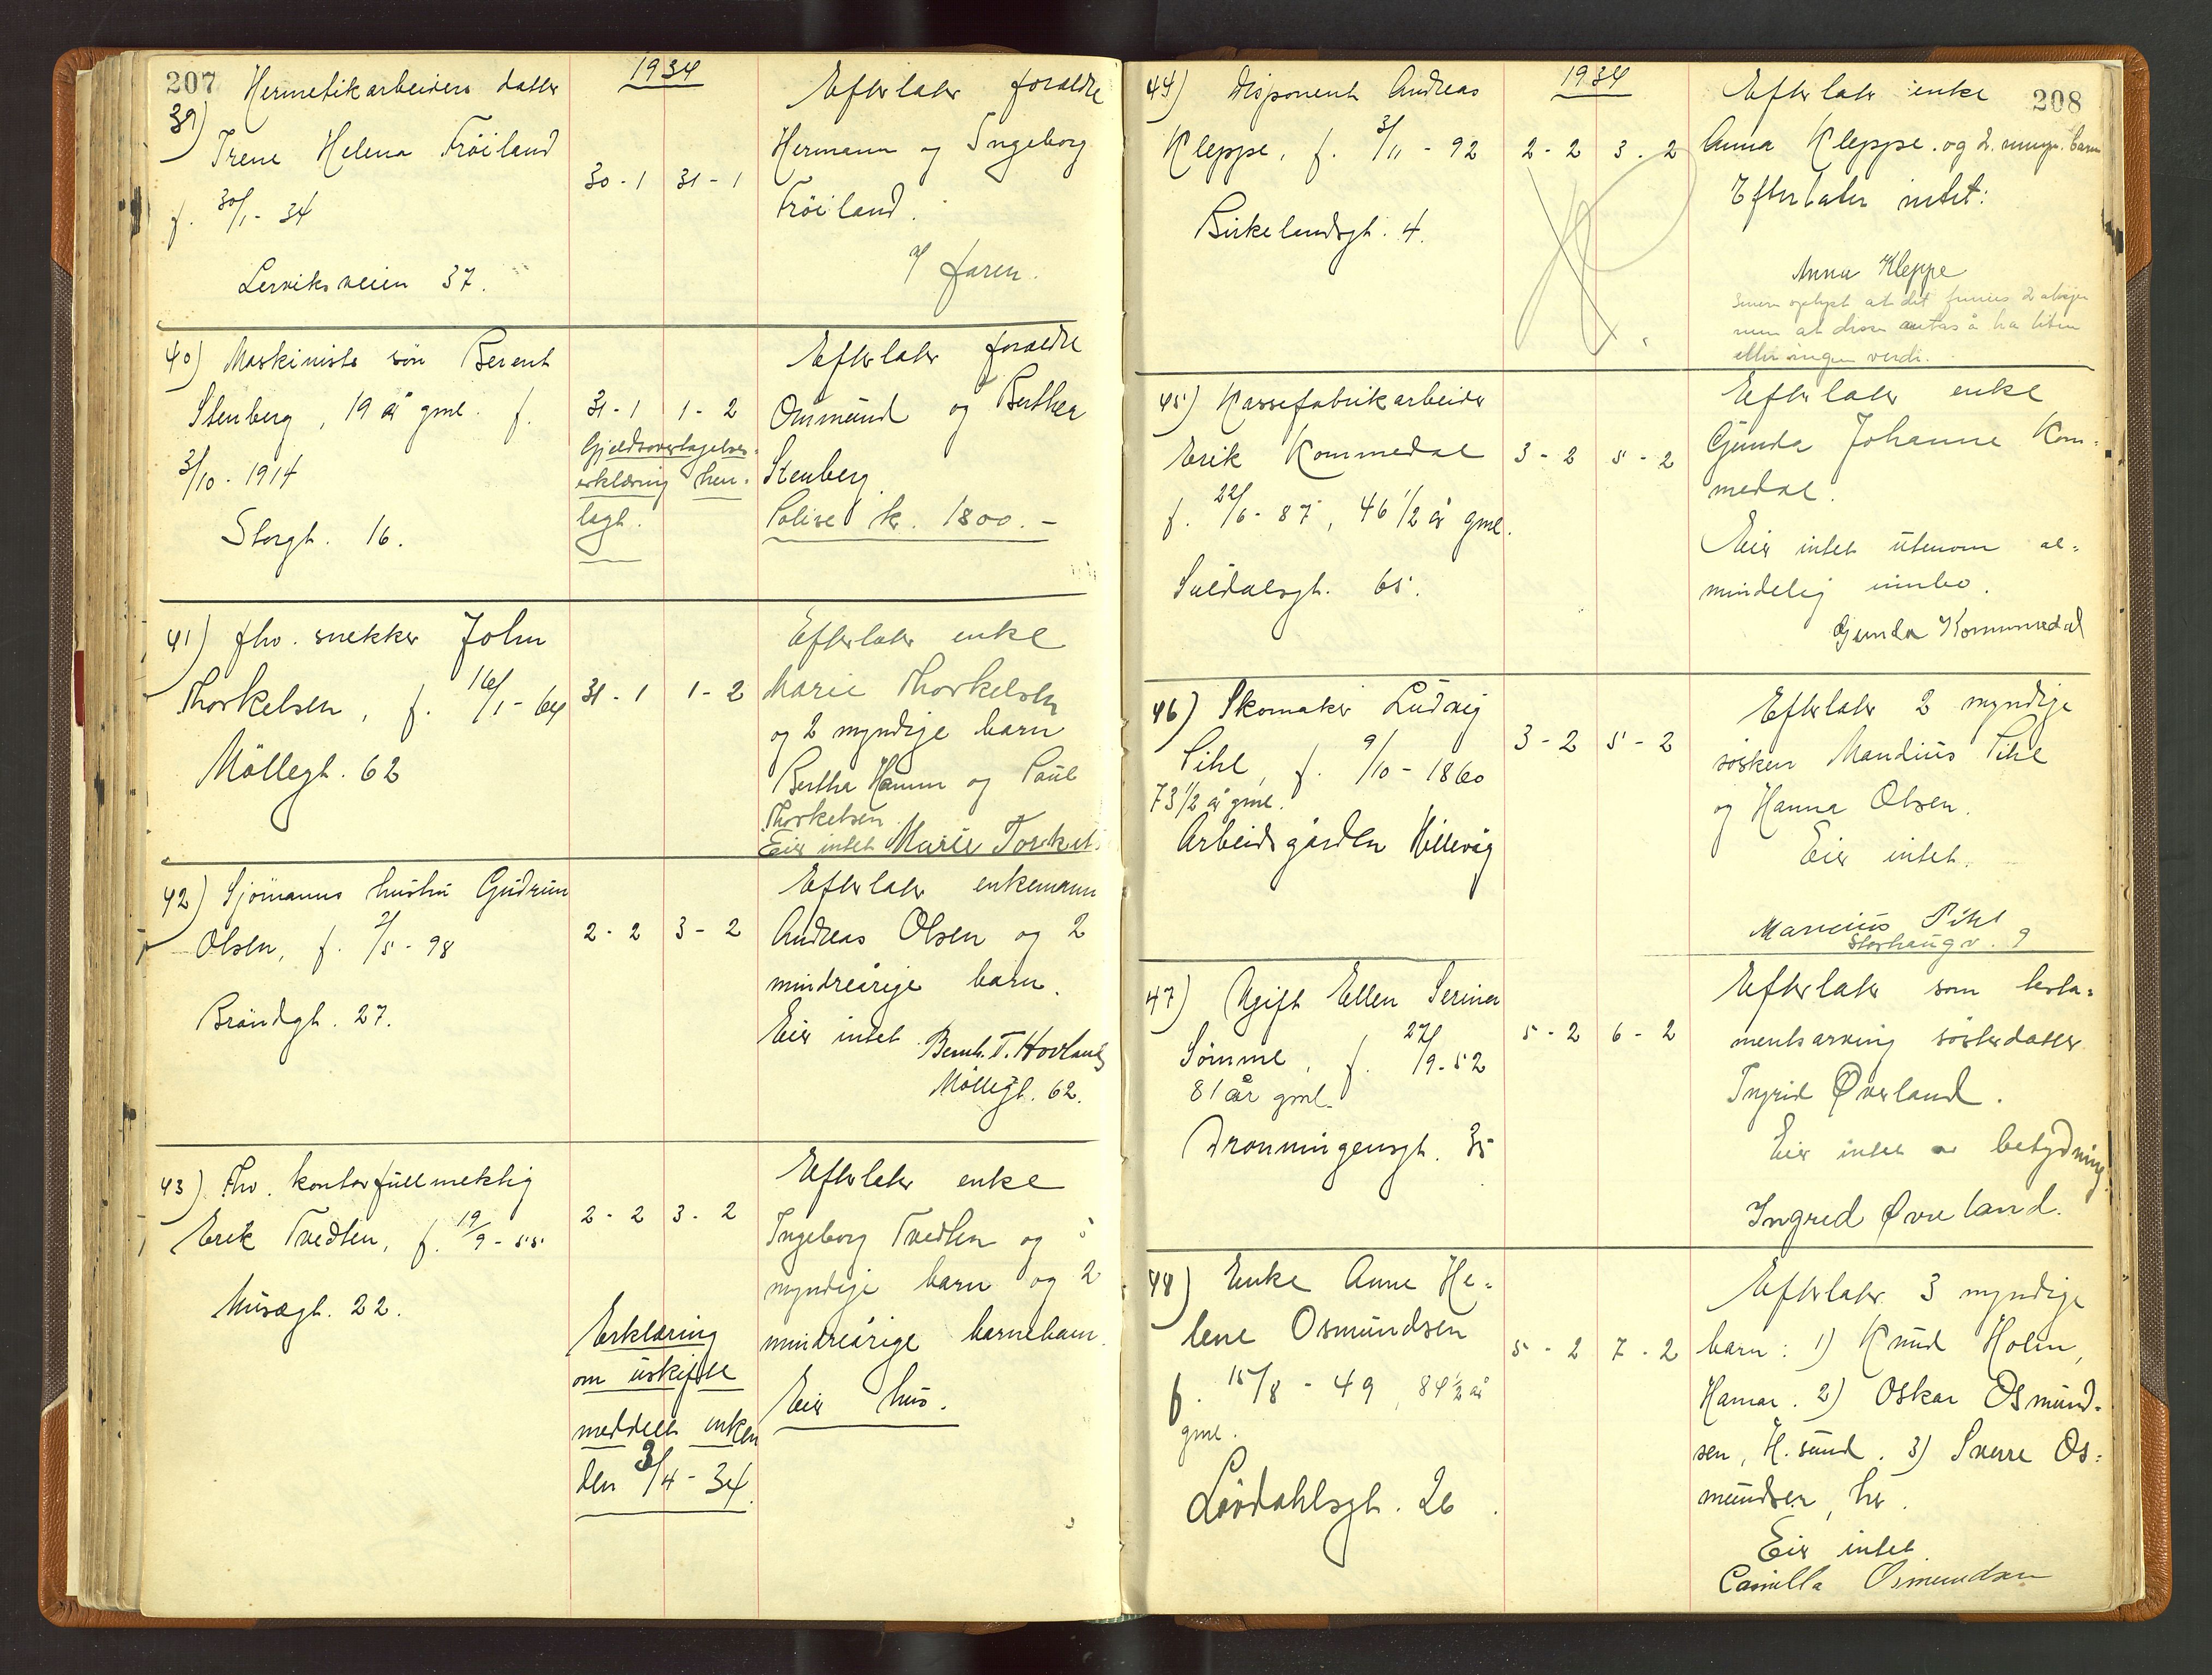 207
1934
39) Hermetikarbeiders datter
Irene Helena Fröiland
f. 30/1 - 34
Lerviksveien 37.
30 - 1 31 - 1
Efterlater foreldre
Hermann og Ingeborg
Fröiland.
faren.
40) Maskinists sön Berent
Stenberg, 19 år gml. f.
3/10 - 1914
Storgt. 16.
31 - 1 1 - 2
Gjeldsovertagelses-
erklæring hen-
lagt.
Efterlater foreldre
Ommund og Berthea
Stenberg.
Polise kr. 1800.-
41) fhv. snekker John
Thorkelsen, f. 16/1 - 64
Möllegt. 62
31 - 1 1 - 2
Efterlater enke
Marie Thorkelsen
og 2 myndige barn
Berthe Hamm og Paul
Thorkelsen.
Eier intet Marie Torkels.
42) Sjömanns hustru Gudrun
Olsen, f. 2/5 - 98
Bröndgt. 27.
2 - 2 3 - 2
Efterlater enkemann
Andreas Olsen og 2
mindreårige barn.
Eier intet
Bernh. T. Hovland
Möllegt. 62.
43) Fhv. kontorfullmektig
Erik Tvedten, f. 19/9 - 55
Muségt. 22.
2 - 2 3 - 2
Erklæring
om uskifte
meddelt enken
den 3/4 - 34.
Efterlater enke
Ingeborg Tvedten og 5
myndige barn og 2
mindreårige barnebarn.
Eier hus.
208
1934
44) Disponent Andreas
Kleppe, f. 3/11 - 92
Birkelandsgt. 4.
2 - 2 3 - 2
Efterlater enke
Anna Kleppe. og 2. barn
Efterlater intet:
Anna Kleppe
oplyst at det finnes 2
men at disse antas å ha liten
eller ingen verdi.
45) Kassefabrikarbeider
Erik Kommedal
f. 22/6 - 87, 46 1/2 år gml.
Suldalsgt. 65.
3 - 2 5 - 2
Efterlater enke
Gunda Johanne Kom-
medal.
Eier intet utenom al-
mindelig innbo.
Gunda Kommedal
46) Skomaker Ludvig
Pihl, f. 9/10 - 1860
73 1/2 år gml.
Arbeidsgården Hillevåg
3 - 2 5 - 2
Efterlater 2 myndige
søsken Mandius Pihl
og Hanna Olsen.
Eier intet.
Mancius Pihl
Storhaugv. 9
47) Ugift Ellen Serina
Sömme, f. 27/9 - 52
81 år gml.
Dronningensgt. 35
5 - 2 6 - 2
Efterlater som testa-
mentsarving søsterdatter
Ingrid Øverland.
Eier intet av betydning.
Ingrid Øverland.
48) Enke Anne He-
lene Osmundsen
f. 15/8 - 49, 84 1/2 år
gml.
Lövdahlsgt. 26
5 - 2 7 - 2
Efterlater 3 myndige
barn: 1) Knud Holm,
Hamar. 2) Oskar Osmund-
sen, H.sund. 3) Sverre Os-
mundsen, her.
Eier intet
Camilla Osmundsen